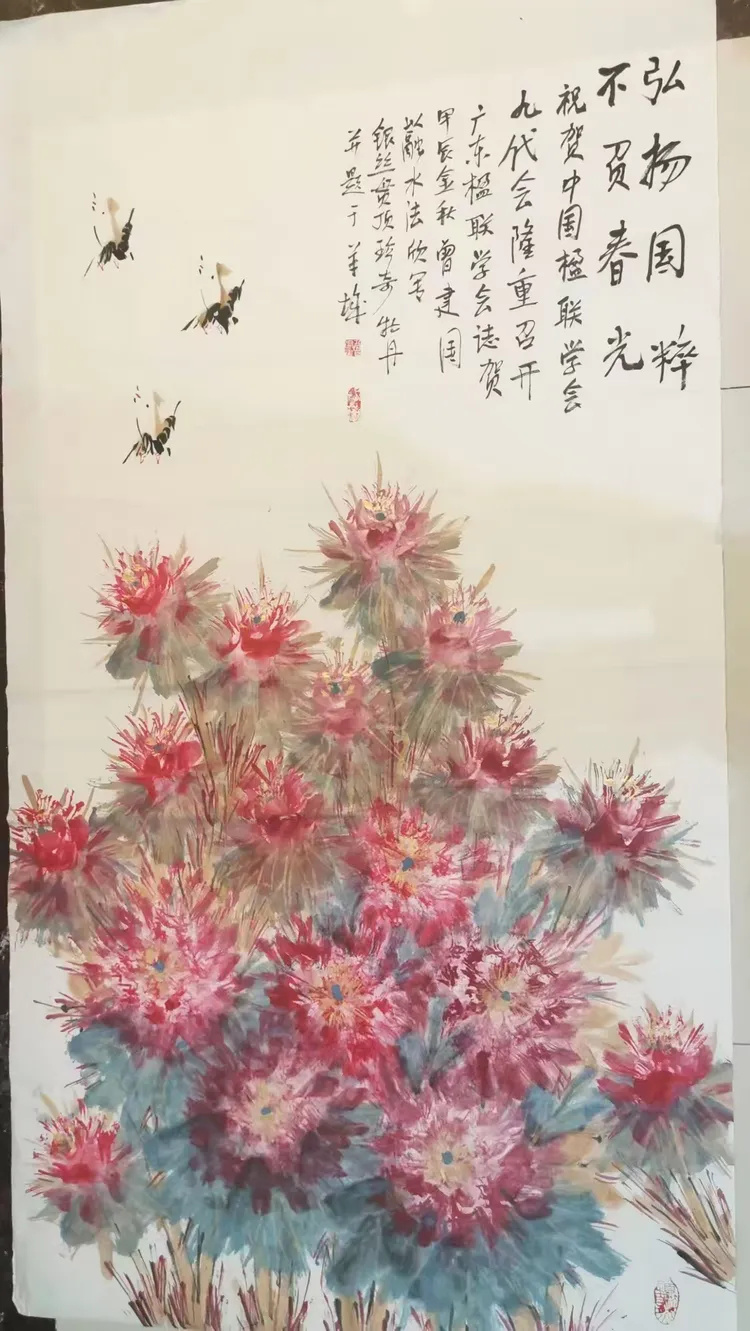 弘扬国粹
不负春光
祝贺中国楹联学会
九代会隆重召开
广东楹联学会志贺
甲辰金秋曾建国
以融水法欣写
银丝贯顶珍奇牡丹
并题于羊城